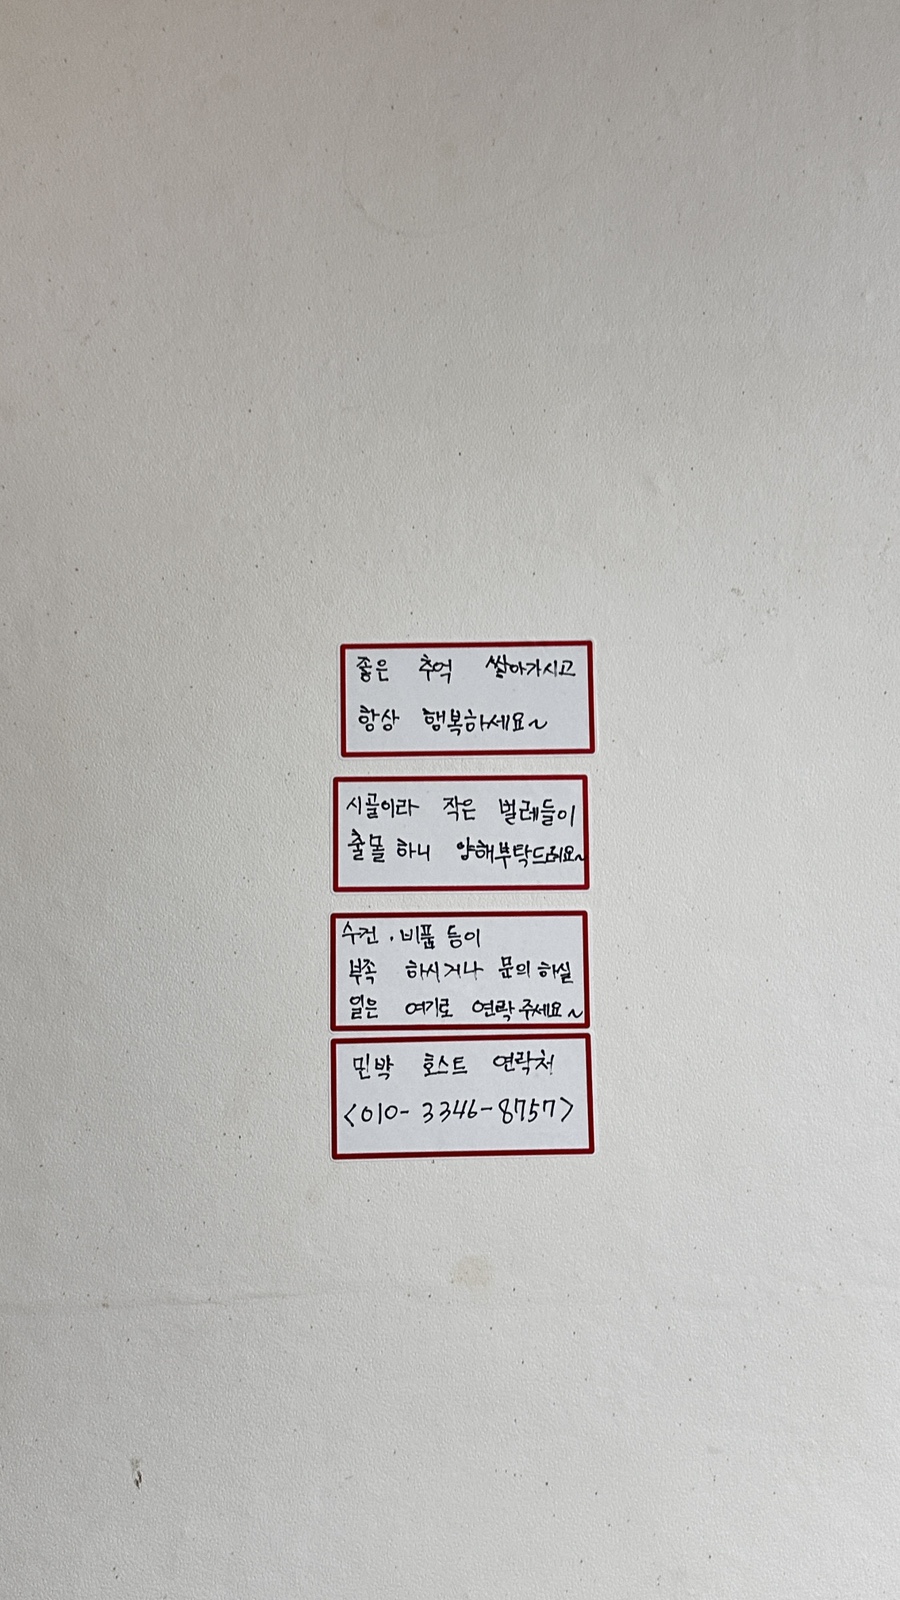 좋은 추억 쌓아가시고
항상 행복하세요~
시골이라 작은 벌레들이
출몰 하니 양해부탁드려요~
수건 . 비품 등이
부족 하시거나 문의 하실
일은 여기로 연락 주세요~
민박 호스트 연락처
<010-3346-8757>